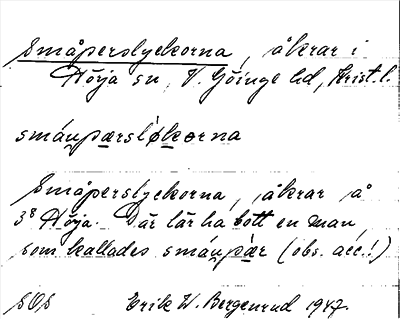 Småperslyckorna, åkrar i
Hörja sn, V. Göinge hd, Krist. l.
småṇpærsløkorna
Småperslyckorna, åkrar å
3⁸ Hörja. Där lär ha bott en man,
som kallades småṇpær (obs. acc.!)
SOS Erik W. Bergenrud 1947.